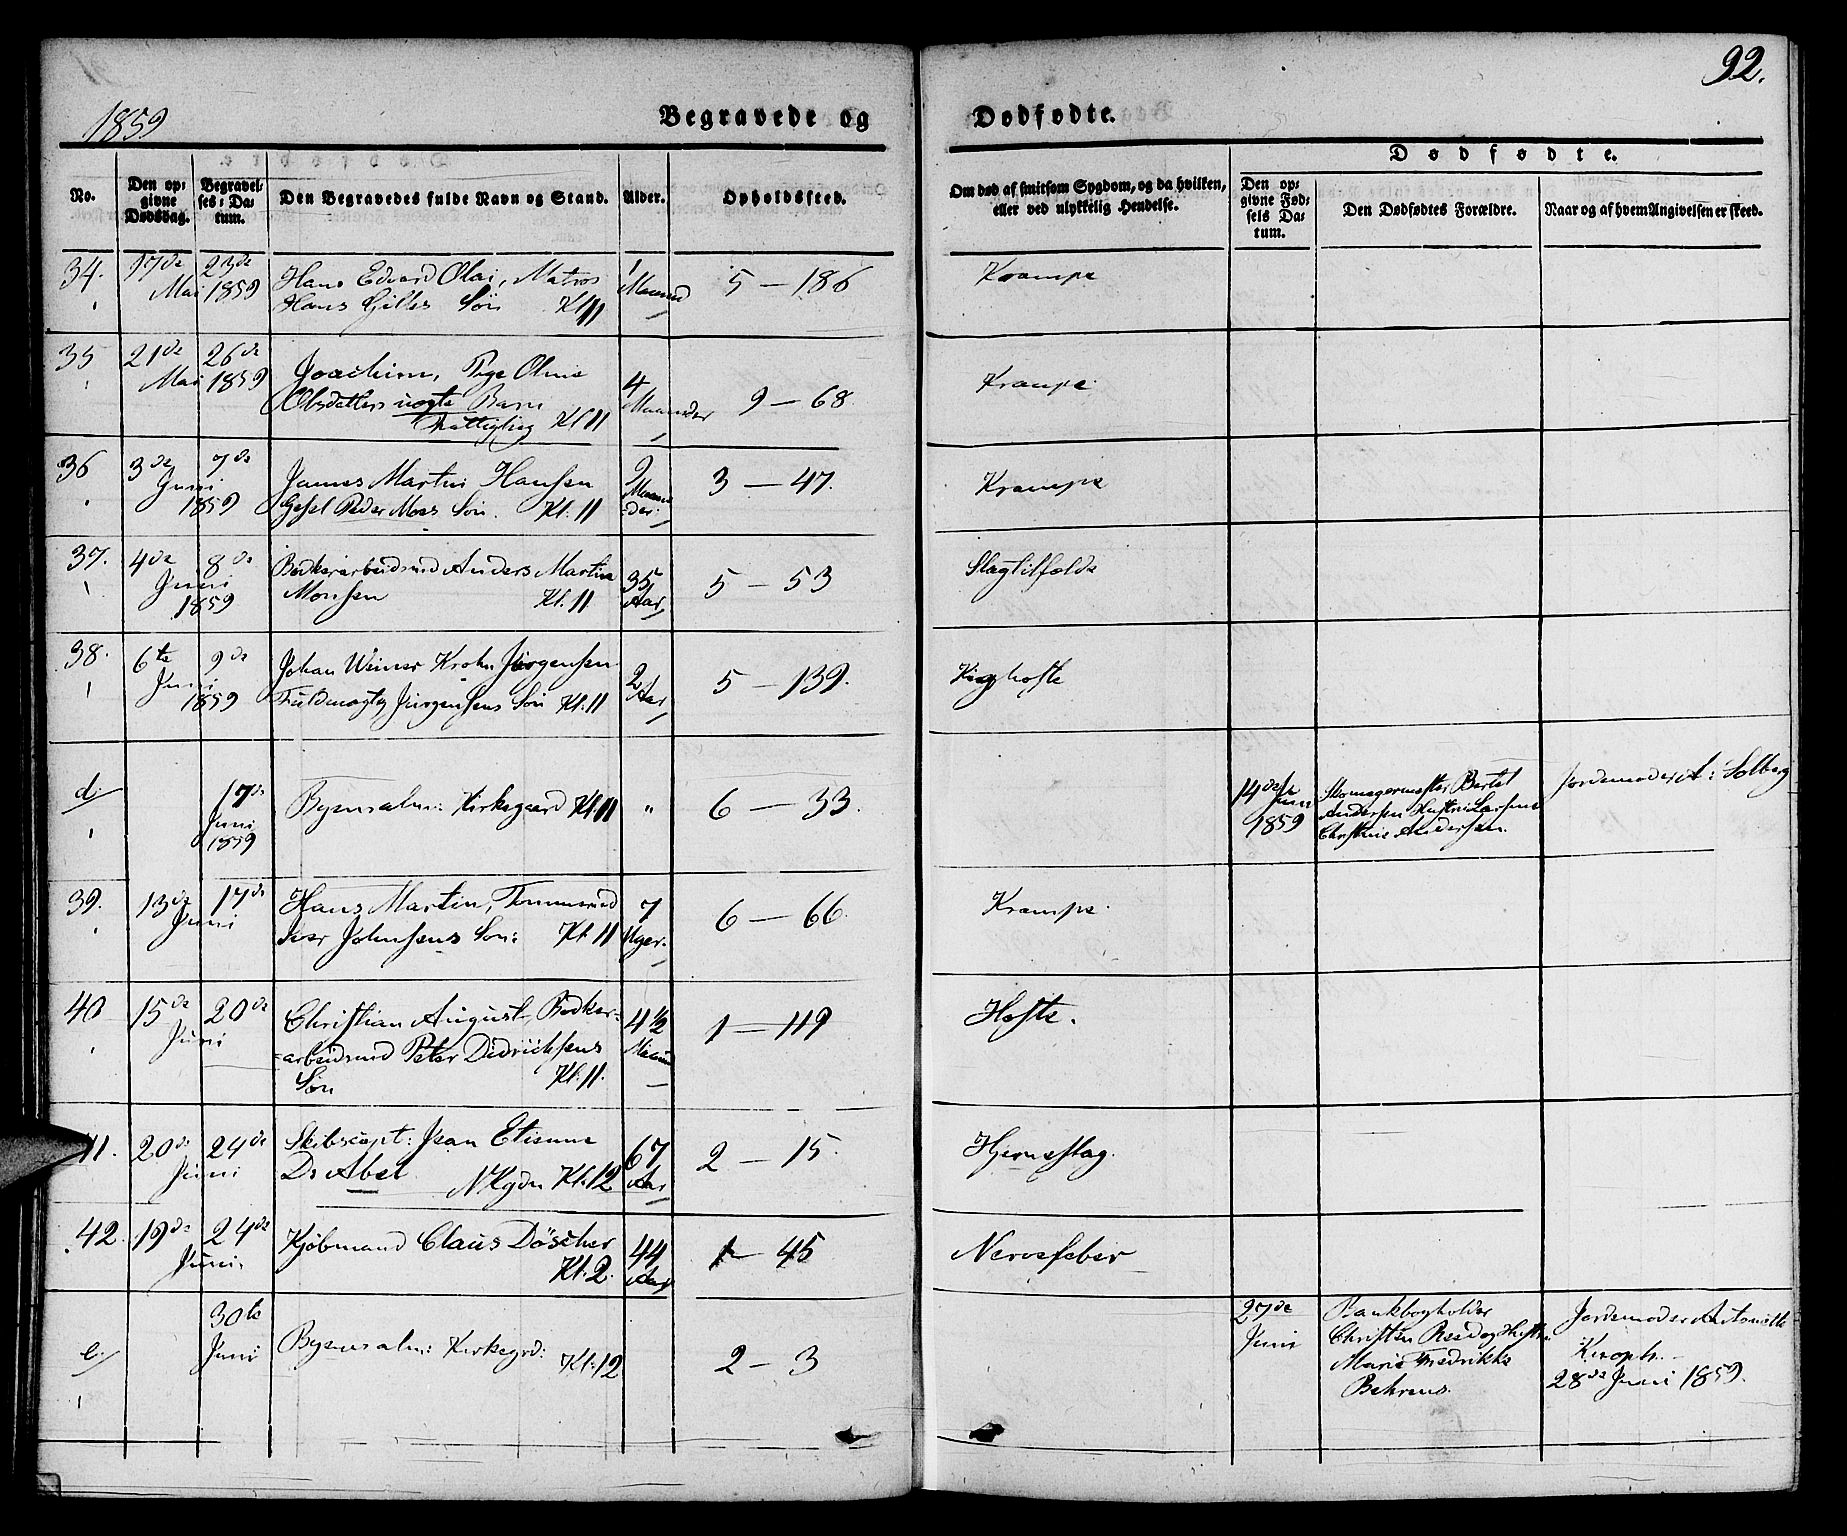 92.
1859
Begravede og Dødfødte.
No.
Den opgivne Dødsdag.
Begravelses-Datum.
Den Begravedes fulde Navn og Stand.
Alder.
Opholdssted.
Om død af smitsom Sygdom, og da hvilken, eller ved ulykkelig Hendelse.
Dødfødte.
Den opgivne Fødsels Datum.
Den Dødfødtes Forældre.
Naar og af hvem Angivelsen er skeed.
34. 17de Mai 23de 1859 Hans Edvard Olai, Matros 1 Maaned 5 — 186 Krampe
Hans Gilles Søn Kl 11
35 21de Mai 26de 1859 Joachim, Pige Oline 4 Maaneder 9 — 68 Krampe
uægte Barn
Kl 11
36 3de Juni 7de 1859 James Martin Hansen 9 Maaneder 3 — 47. Krampe
Peder Moes Søn. Kl. 11
37. 4de Juni 8de 1859 Bødkerarbeidsmd Anders Martin 35 Aar 5 — 53 Slagtilfælde
Monsen Kl. 11
38. 6te Juni 9de 1859 Johan Weiner Krohn Jørgensen 2 Aar 5 — 139. Kighoste
Fuldmægtig Jørgensens Søn Kl. 11
d. 17de Juni 1859 Byens alm: Kirkegaard Kl. 11 " 6 — 33. 14de Juni 1859 Skomagermester Bertel Jordemoder A: Solberg
Andersen Hustru
Christine Andersen.
39. 13de Juni 17de Hans Martin, Tømmermd 7 Uger. 6 — 66. Krampe
Iver Johnsens Søn: Kl. 11
40 15de Juni 20de Christian August, Bødker- 4½ Maaned 1 — 119 Hoste.
-arbeidsmd Peter Didrichsens
Søn Kl: 11.
41. 20de Juni 24de Skibscapt: Jean Etienne 67 Aar 2 — 15. Hjerneslag.
D Abel. N Kgdn Kl. 12
42. 19de Juni. 24de Kjøbmand Claus Döscher 44 Aar 1 — 45 Nervefeber
Kl. 2.
e. 30te Juni Byens alm: Kirkegrd: Kl: 12 2 — 3 27de Juni Bankbogholder Jordemoder
Christen Hustru
Marie Fredrikke
Behrens. 28de Juni 1859.